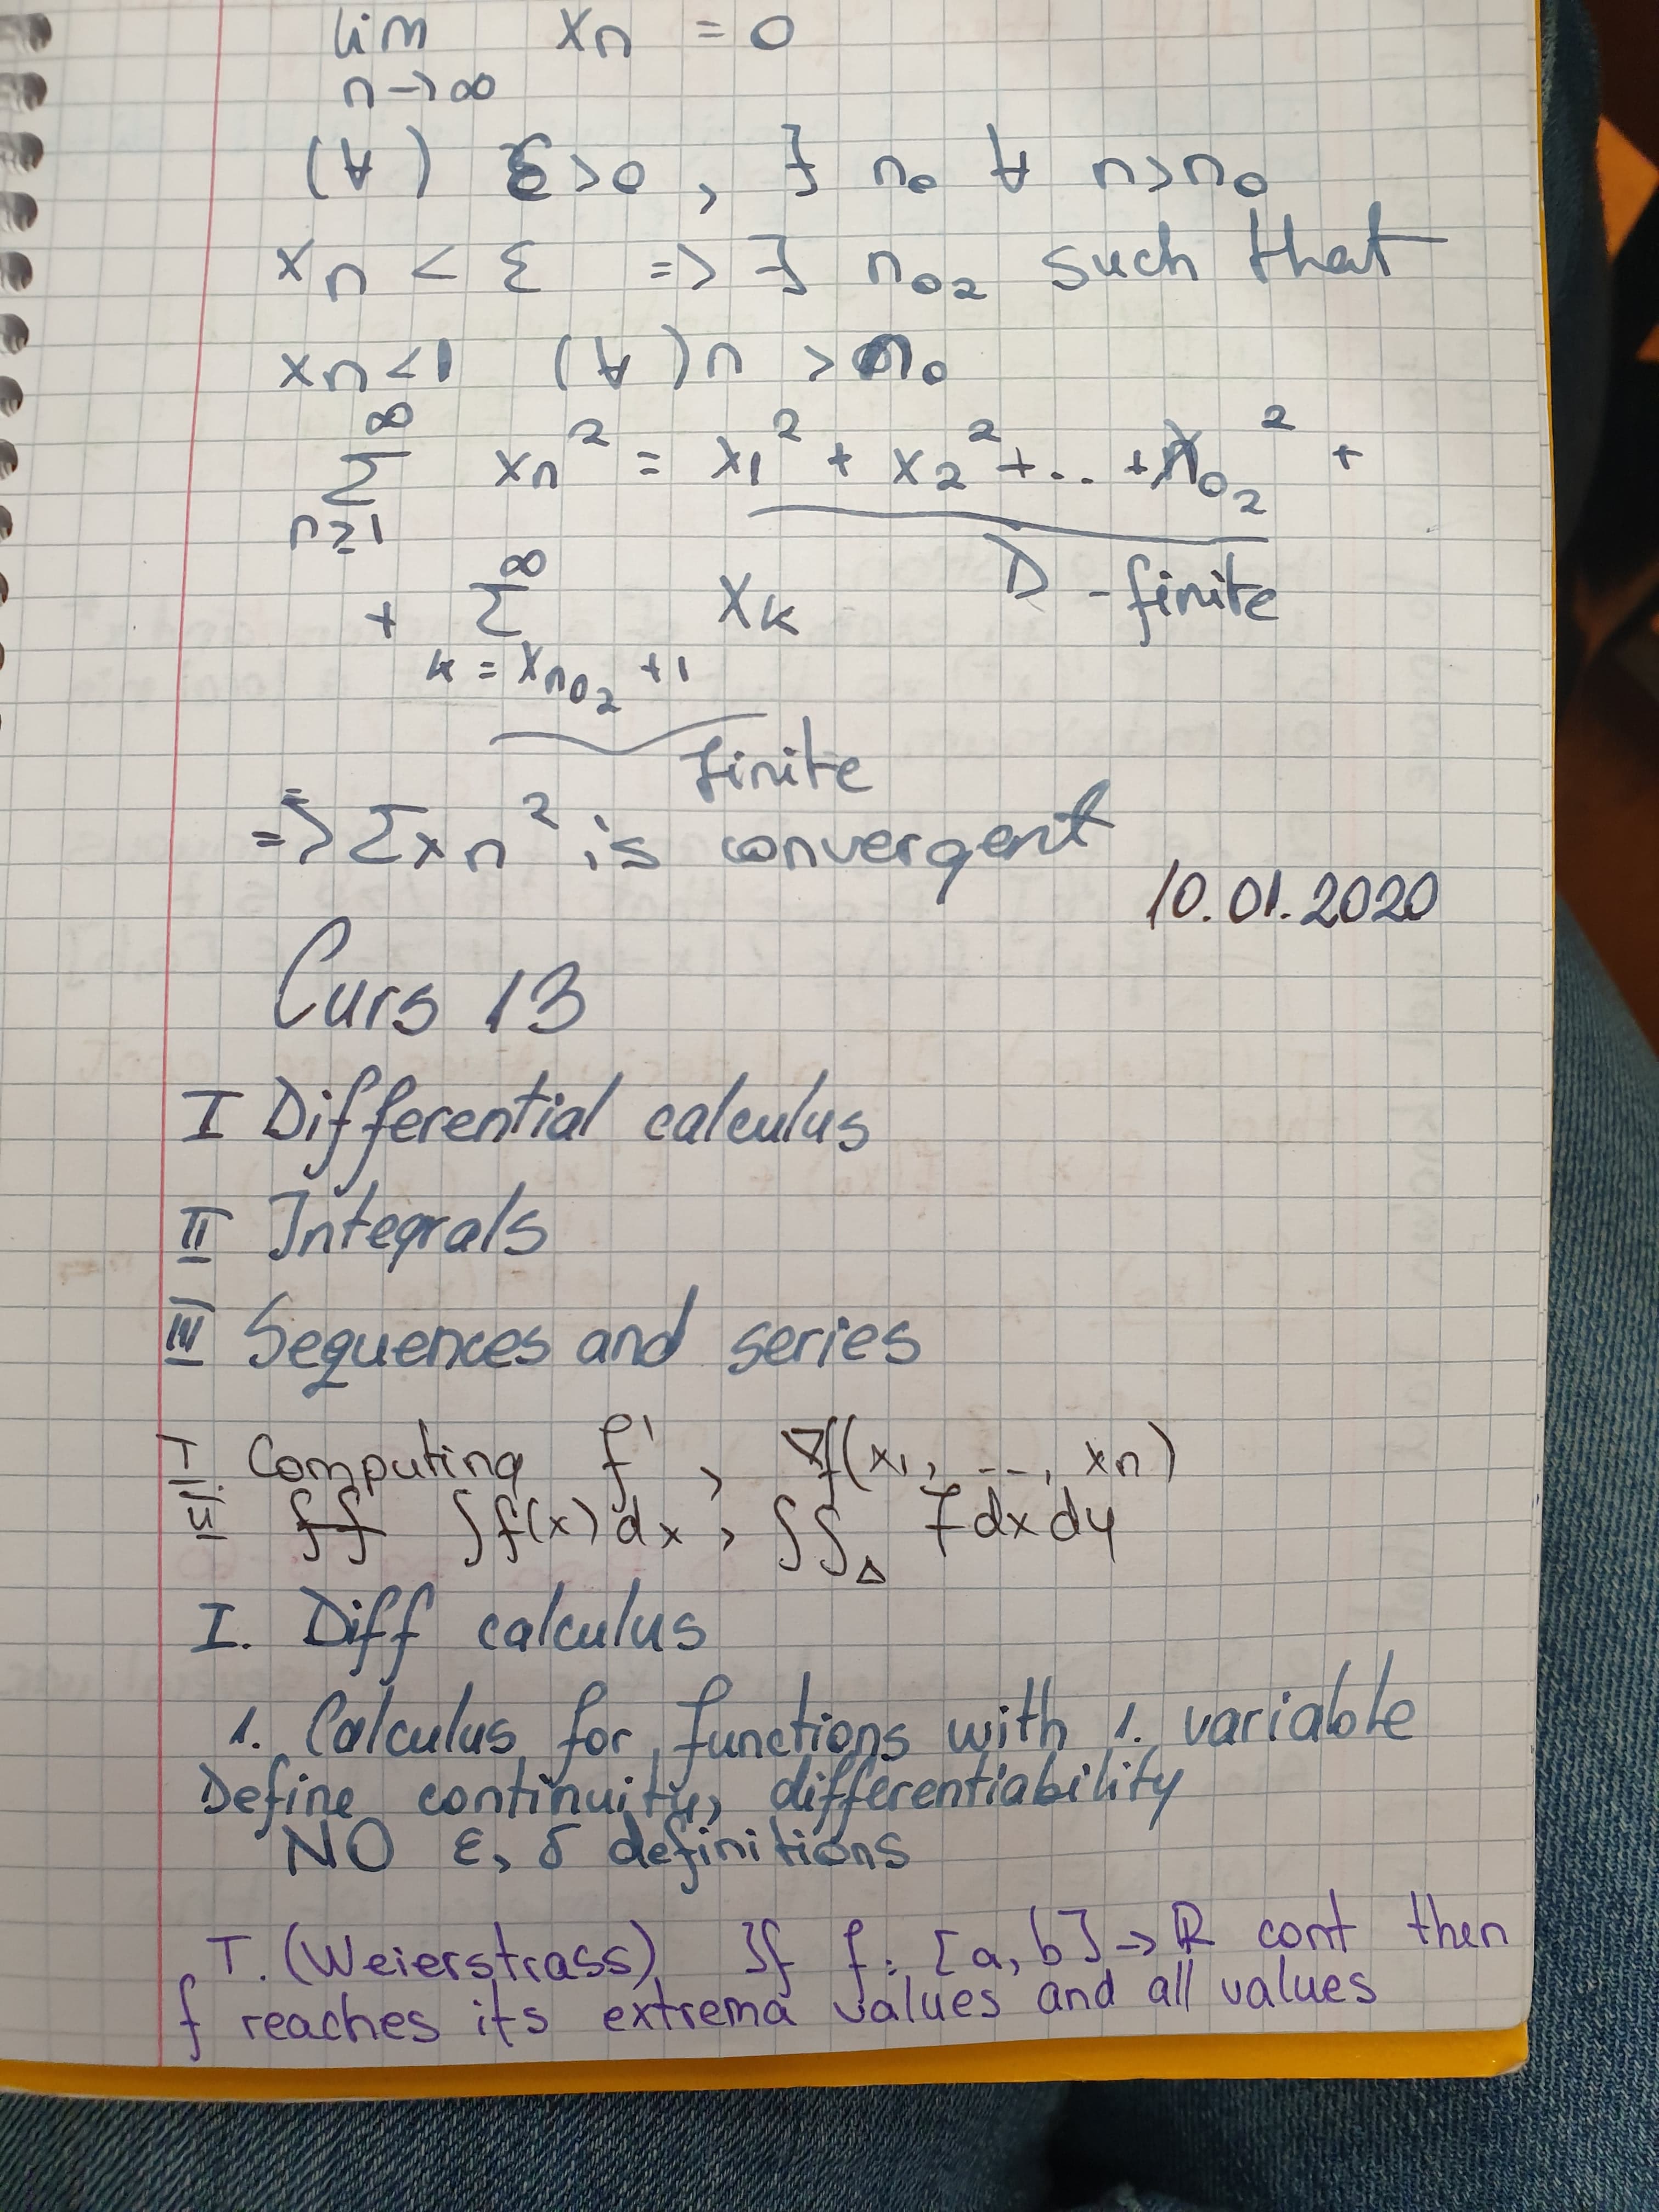 lim xn = 0
n→∞
(∀) ε>0, ∃ n₀ ∀ n>n₀
xn < ε => ∃ n₀₂ such that
xn<1 (∀)n > n₀
∞
Σ xn² = x₁² + x₂² + .. + x₀₂² +
n≥1
∞
+ Σ xk D - finite
k = xn₀₂ +1
finite
=> Σxn² is convergent
10.01.2020
Curs 13
I Differential calculus
II Integrals
III Sequences and series
I. Computing f', ∇f(x₁, ..., xn)
II ∫f(x)dx, ∫∫Δ f dx dy
I. Diff calculus
1. Calculus for functions with 1. variable
Define continuity, differentiability
NO ε, δ definitions
T. (Weierstrass) If f: [a, b] → ℝ cont then
f reaches its extrema values and all values